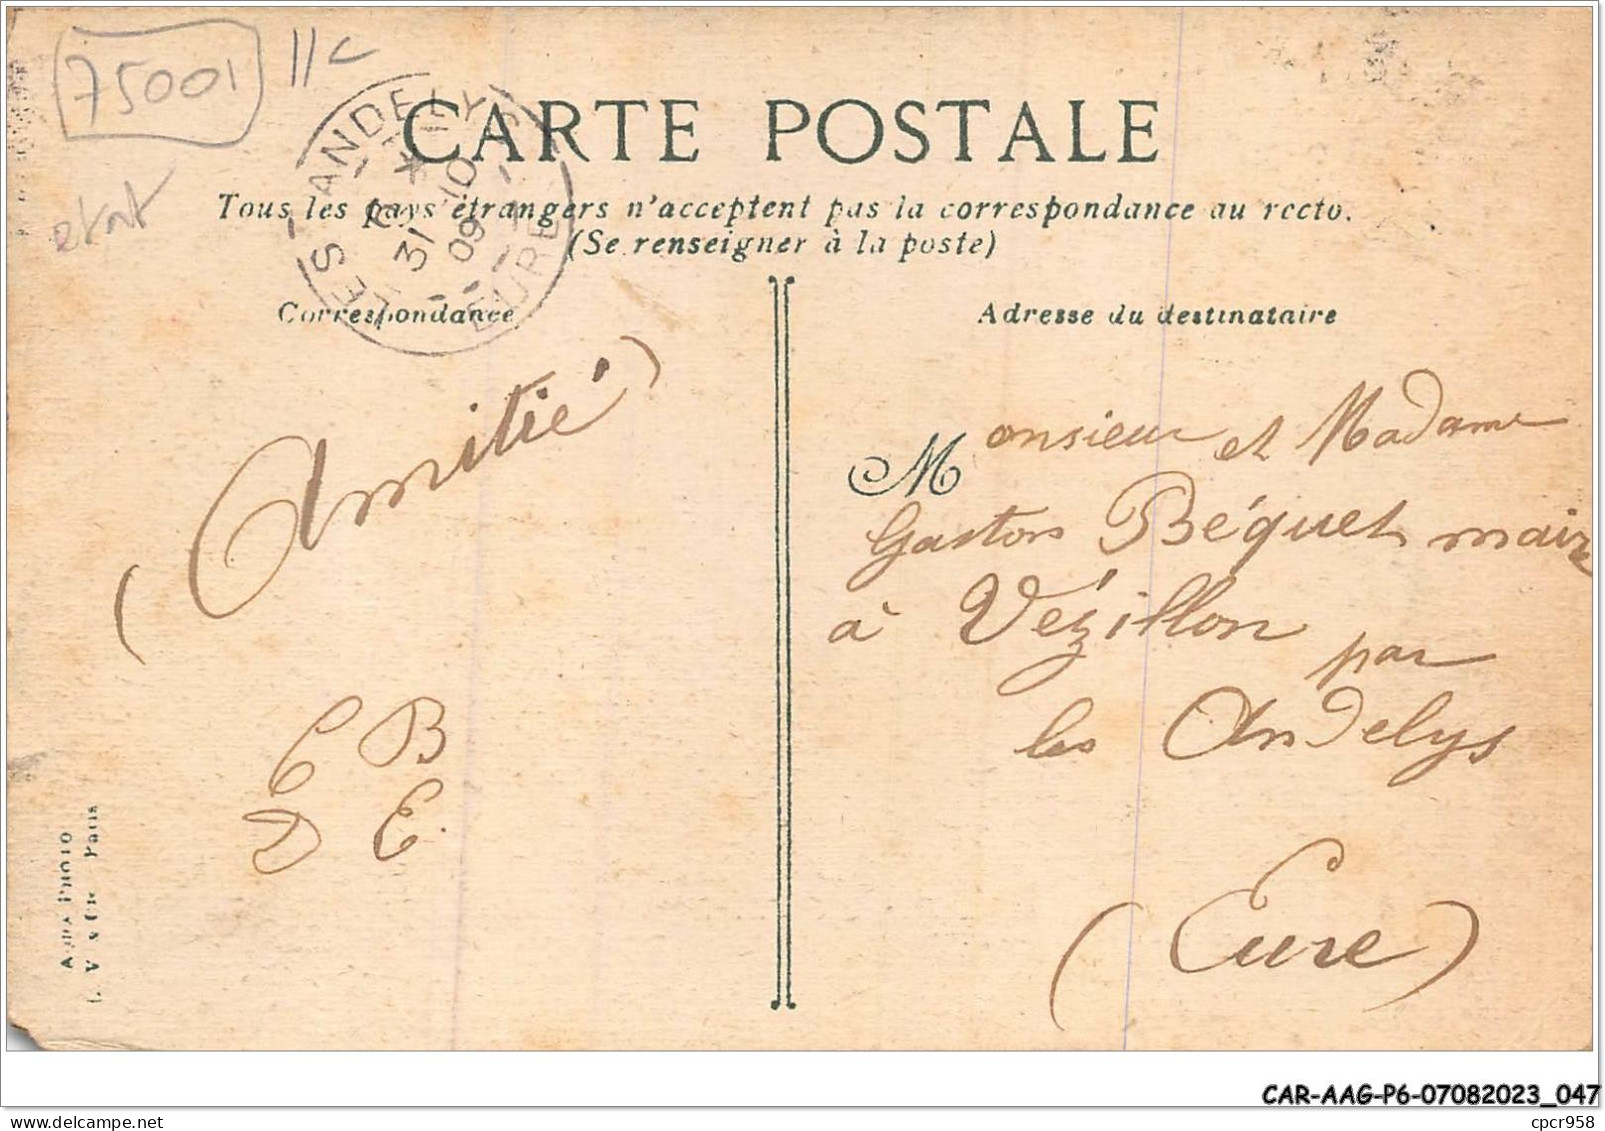 75001 11 c
état
CARTE POSTALE
Tous les pays étrangers n'acceptent pas la correspondance au recto.
(Se renseigner à la poste)
LES ANDELYS
31 - 10
09
EURE
Correspondance
Adresse du destinataire
(Amitié)
C B
D E.
Monsieur et Madame
Gaston Béquet maire
à Vézillon par
les Andelys
(Eure)
PHOTO
Paris
CAR-AAG-P6-07082023_047
delcampe.net
cpcr958